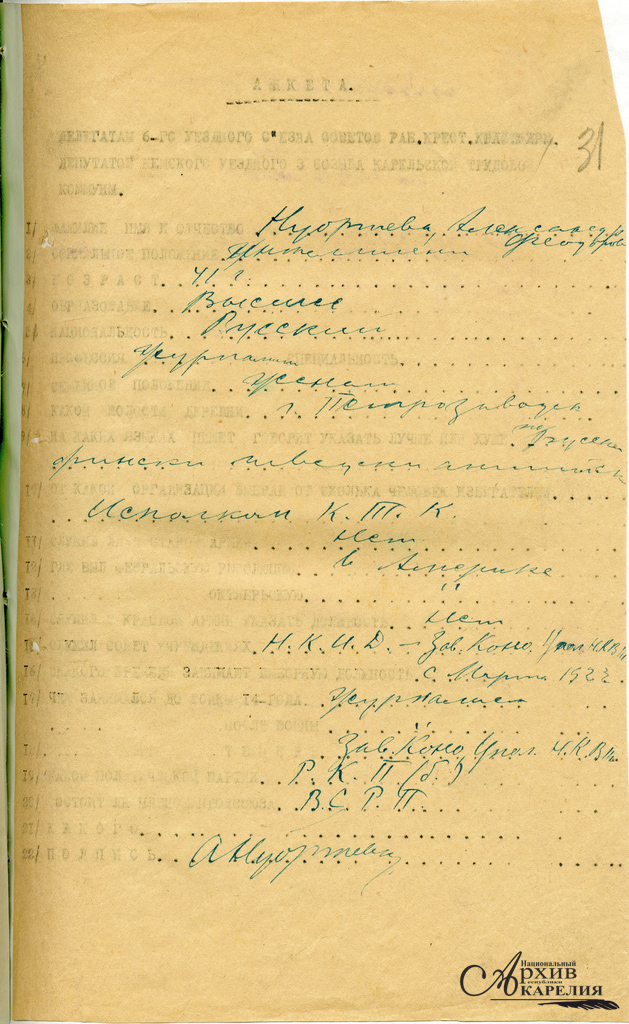 АНКЕТА.
31
ДЕЛЕГАТАМ 6-ГО УЕЗДНОГО С'ЕЗДА СОВЕТОВ РАБ.КРЕСТ.КРАСНОАРМ.
ДЕПУТАТОВ УЕЗДНОГО СОЗЫВА КАРЕЛЬСКОЙ ТРУДОВОЙ
КОММУНЫ.
1/ ФАМИЛИЯ ИМЯ И ОТЧЕСТВО Нуортева, Александр
2/ СОЦИАЛЬНОЕ ПОЛОЖЕНИЕ Федоров
3/ ВОЗРАСТ 41 г.
4/ ОБРАЗОВАНИЕ Высшее
5/ НАЦИОНАЛЬНОСТЬ Русский
6/ ПРОФЕССИЯ Журналист СПЕЦИАЛЬНОСТЬ
7/ СЕМЕЙНОЕ ПОЛОЖЕНИЕ Женат
8/ КАКОЙ ВОЛОСТИ ДЕРЕВНИ г. Петрозаводск
9/ НА КАКИХ ЯЗЫКАХ ПИШЕТ ГОВОРИТ УКАЗАТЬ ЛУЧШЕ ИЛИ ХУЖЕ по русски
фински шведски английски
10/ ОТ КАКОЙ ОРГАНИЗАЦИИ ВЫБРАН ОТ СКОЛЬКА ЧЕЛОВЕК ИЗБИРАТЕЛЕЙ
Исполком К.Т.К.
11/ Нет
12/ ГДЕ БЫЛ ФЕВРАЛЬСКУЮ РЕВОЛЮЦИЮ в Америке
13/ ОКТЯБРЬСКУЮ "
14/ КРАСНОЙ АРМИИ УКАЗАТЬ ДОЛЖНОСТЬ Нет
15/ СЛУЖИЛ СОВЕТ УЧРЕЖДЕНИЯХ Н.К.И.Д. - Зав. Коно.
16/ С КАКОГО ВРЕМЕНИ ЗАНИМАЕТ ВЫБОРНУЮ ДОЛЖНОСТЬ с Марта 1922
17/ ЧЕМ ЗАНИМАЛСЯ ДО ВОЙНЫ 14-ГОДА. Журналист
ПОСЛЕ ВОЙНЫ "
Зав. Коно
19/ КАКОЙ ПОЛИТИЧЕСКОЙ ПАРТИИ Р.К.П(б.)
20/ СОСТОИТ ЛИ ЧЛЕНОМ ПРОФСОЮЗА В.С.Р.П.
21/
22/ ПОДПИСЬ. АНуортева
Национальный
Архив
республики
КАРЕЛИЯ